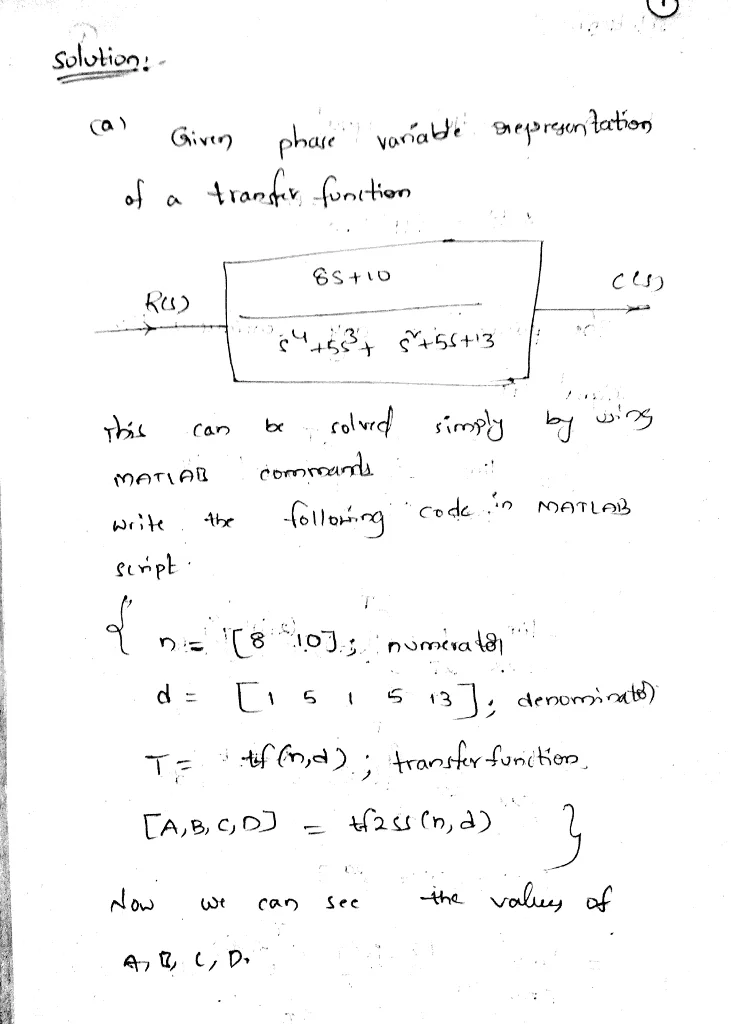 Solution:-
(a) Given phase variable representation
of a transfer function
8S+10
R(s)
C(s)
s⁴+5s³+ s²+5s+13
This can be solved simply by using
MATLAB commands
write the following code in MATLAB
script.
{ n = [8 10]; numerator
d = [1 5 1 5 13]; denominator
T = tf(n,d); transfer function.
[A,B,C,D] = tf2ss(n,d) }
Now we can see the values of
A, B, C, D.